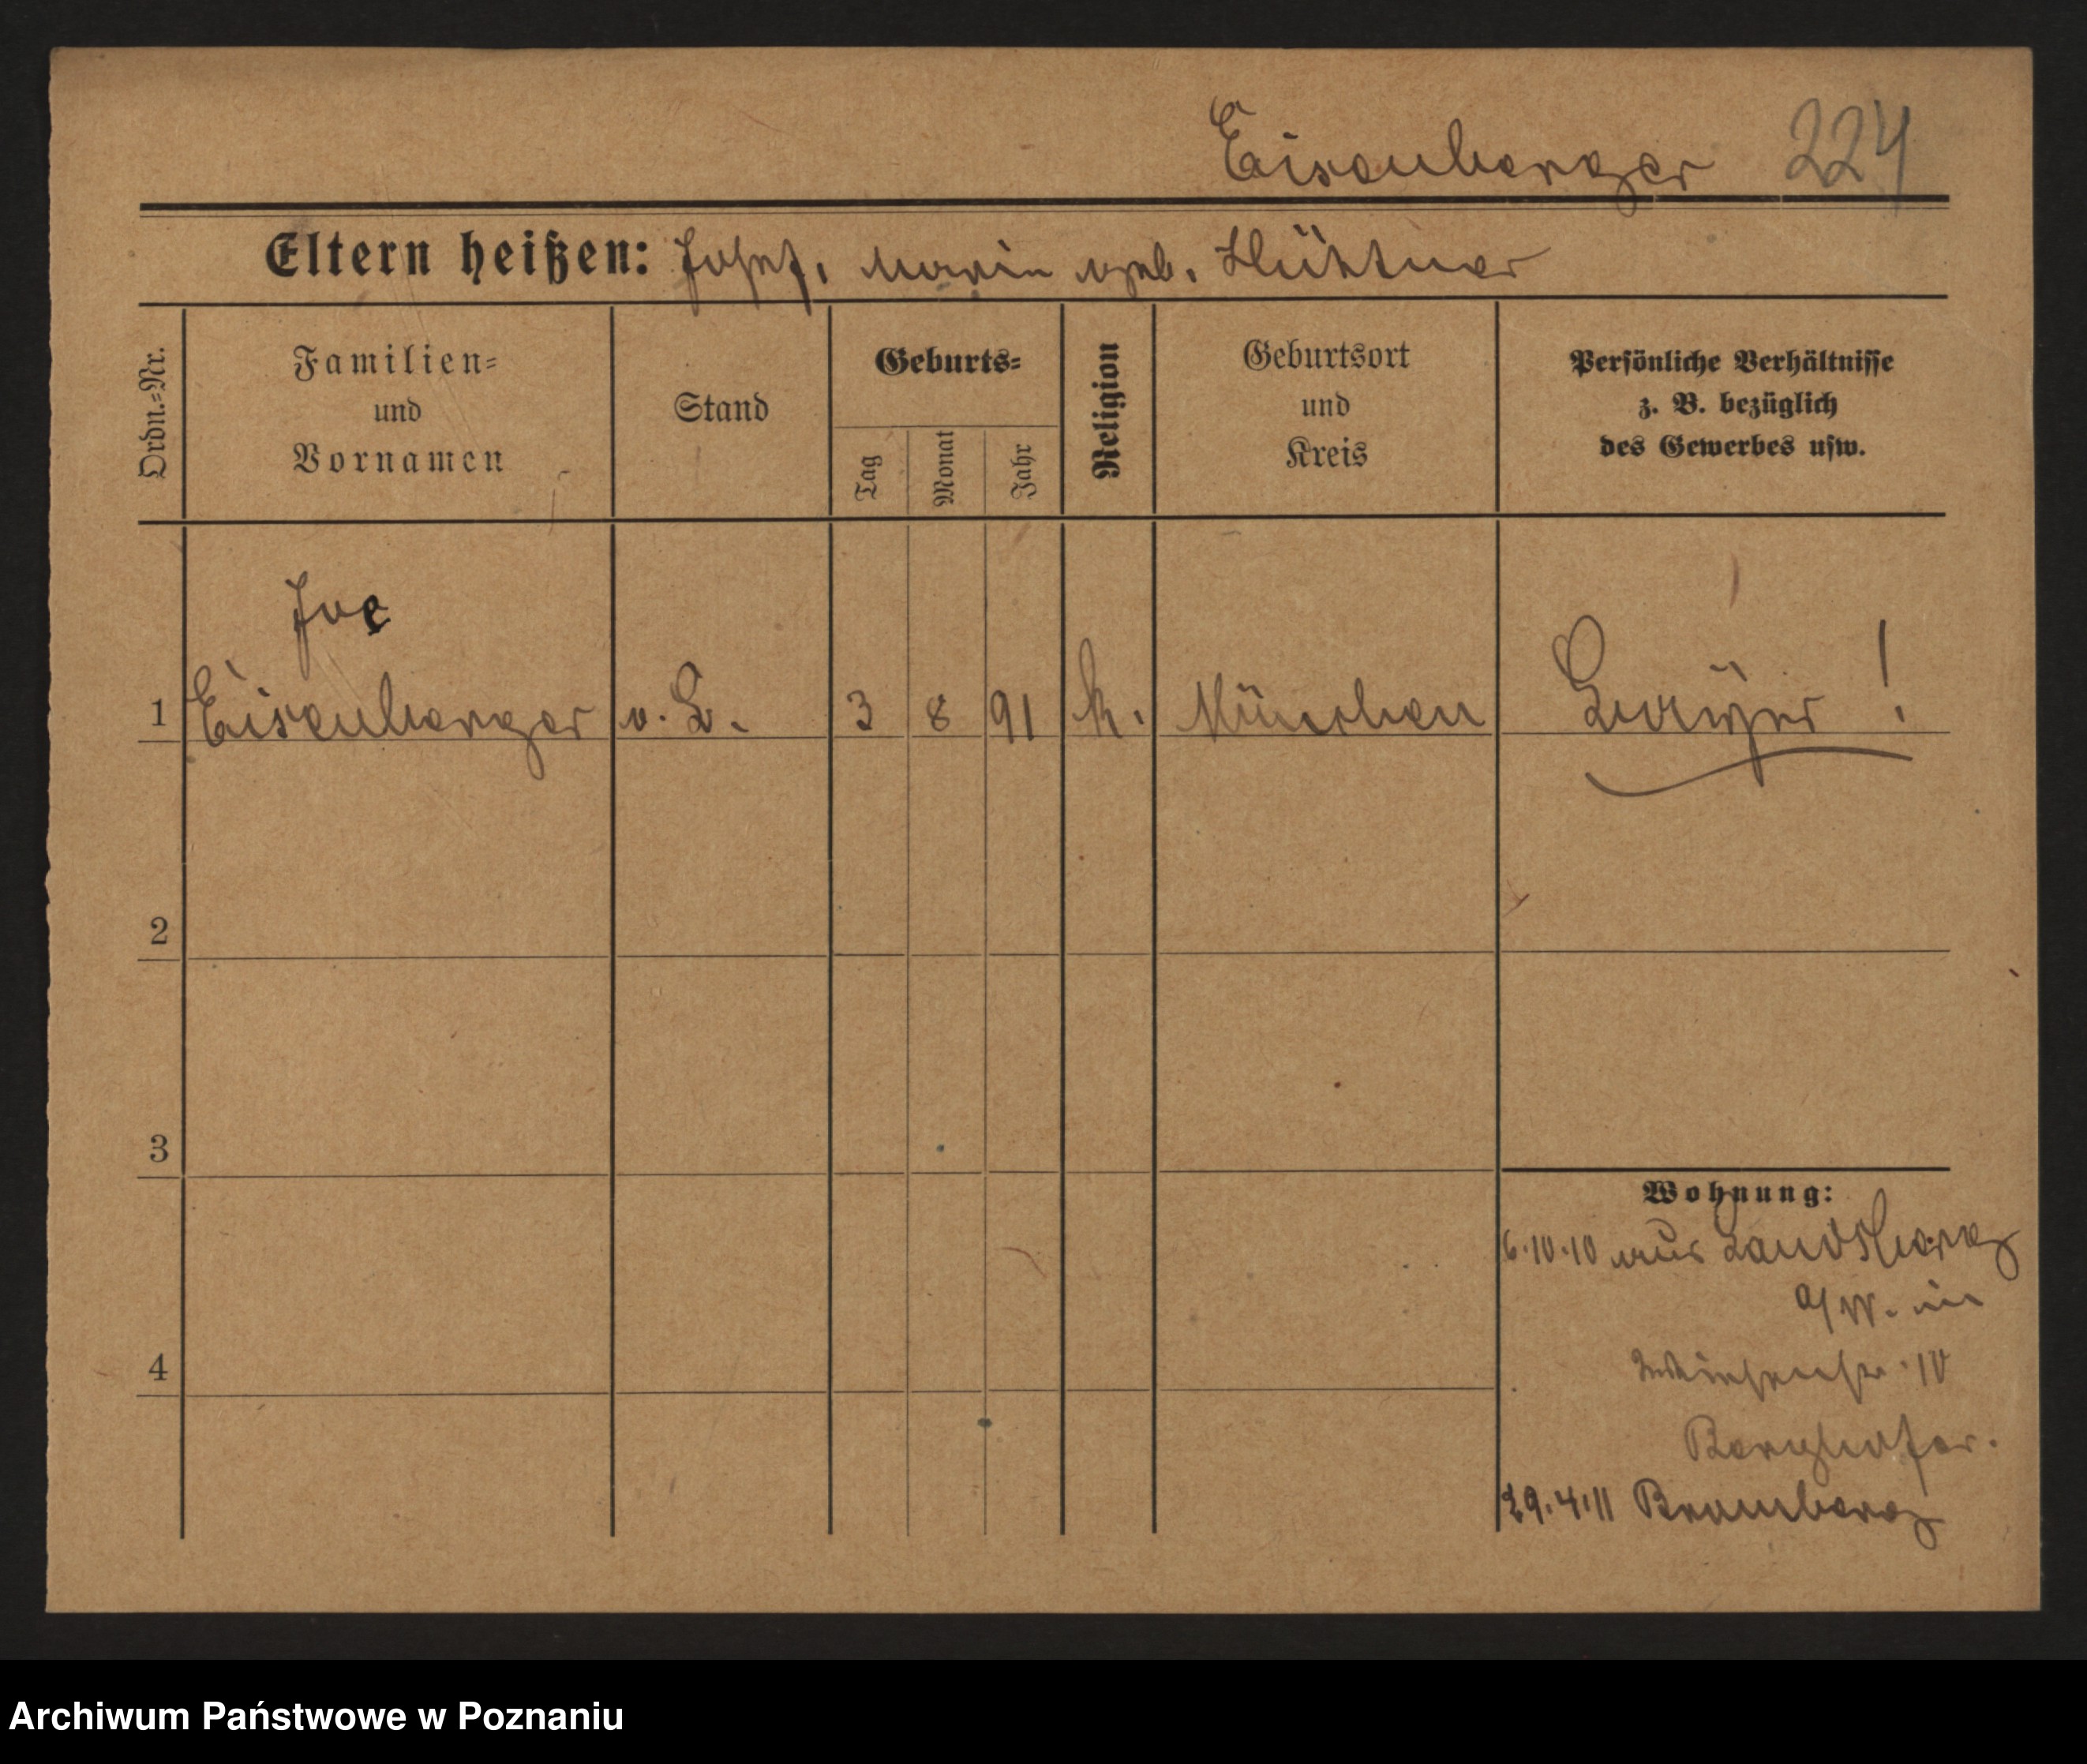 Eisenberger 224
Eltern heißen: Josef, Maria geb. Hüttner
Ordn.-Nr.
Familien-
und
Vornamen
Stand
Geburts-
Tag
Monat
Jahr
Religion
Geburtsort
und
Kreis
Persönliche Verhältnisse
z. B. bezüglich
des Gewerbes usw.
1 Eisenberger 3 8 91 k. München Bayer!
2
3
4
Wohnung:
6.10.10 aus Landsberg
a/W. in
10
29.4.11 Bromberg
Archiwum Państwowe w Poznaniu